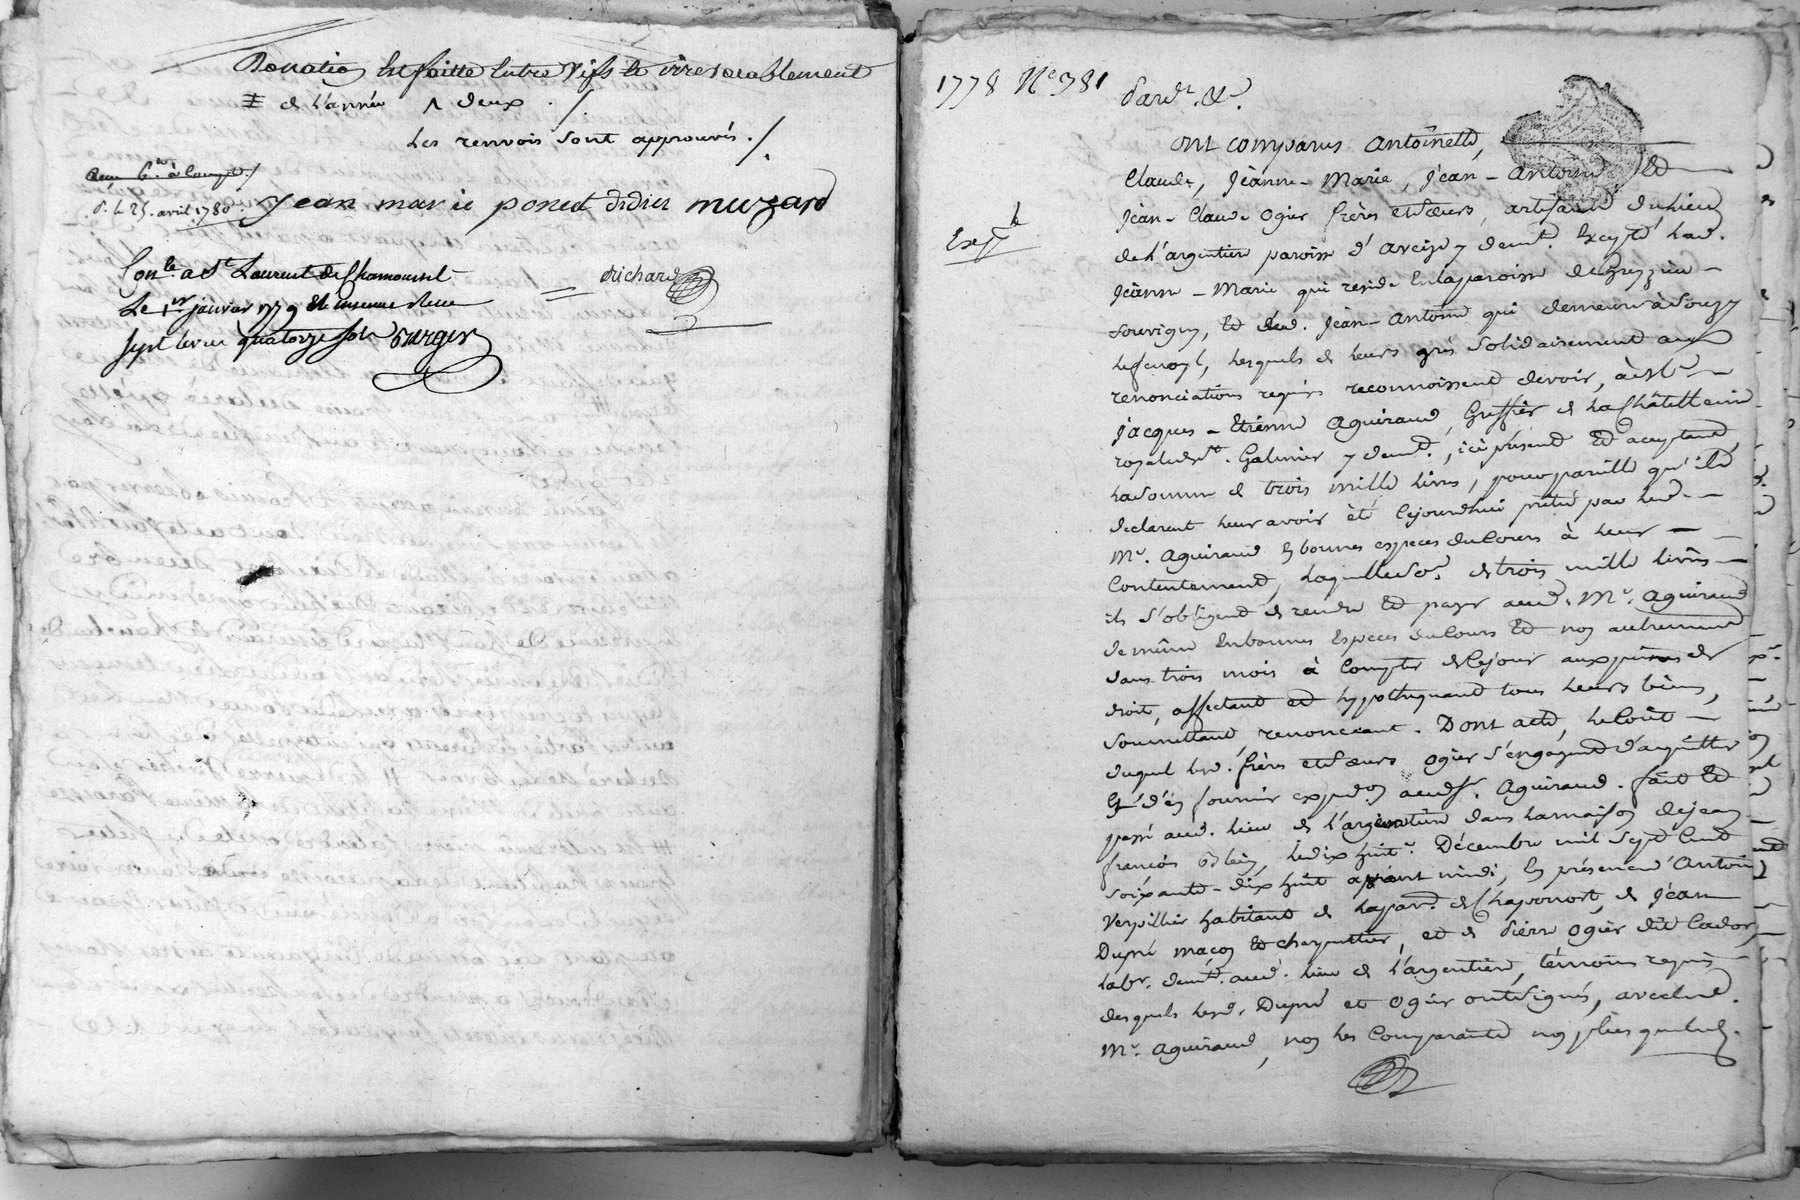 Donation Est faitte Entre Vifs et irrevocablement
ǂ de l'année ʌ deux ./
Les renvois sont approuvés ./
d. L. 25. avril 1780
Jean marie poncet didier muzard
Conlé a St Laurent de Chamousset
Le 1er janvier 1779
richard
sept livres quatorze sols
1778 Ne 381
Pardt. &.
ont comparus antoinette,
Claude, Jeanne-Marie, Jean-Antoine Et
Jean-Claude ogier frères et sœurs, artisants du lieu
de L'argentiere paroisse d'aveize y demt. Excepté lad.
Jeanne-Marie qui reside En la paroisse de Grezzieu-
Exp.
souvigny, Et led. Jean-Antoine qui demeure à Souzy
, Lesquels de leurs grés solidairement aux
renonciations requises reconnoissent devoir, à Me
Jacques-Etienne Aguiraud, Greffier de La Châtellenie
royale de St. Galmier y demt., ici présent Et acceptant
La somme de trois mille livres, pour pareille qu'ils
declarent leur avoir été Cejourdhui prêté par led.
Mr. Aguiraud En bonnes especes du Cours à leur
Contentement, Laquelle so. de trois mille livres
ils s'obligent de rendre Et payer aud. Mr. Aguiraud
de même En bonnes Especes du Cours Et non autrement
dans trois mois à Compter de Cejour aux peines de
droit, affectant et hypothequant tous leurs biens,
soumettant renonceant. Dont acte, le Coût
duquel Lesd. frères et sœurs ogier s'engagent d'acquitter
Et d'en fournir expedon audsr. Aguiraud. fait Et
passé aud. lieu de L'argentiere dans la maison de jean
françois , le dix huit. Décembre mil sept Cent
soixante-dix huit avant midi, En présence d'Antoine
Verpillier habitant de la par. de Chaponost, de Jean
Dupré maçon Et charpentier, et de Pierre ogier dit Cador,
labr. demt. aud. lieu de L'argentiere, témoins requis
desquels lesd. Dupré et ogier ont signés, avec led.
Mr. Aguiraud, non les Comparants